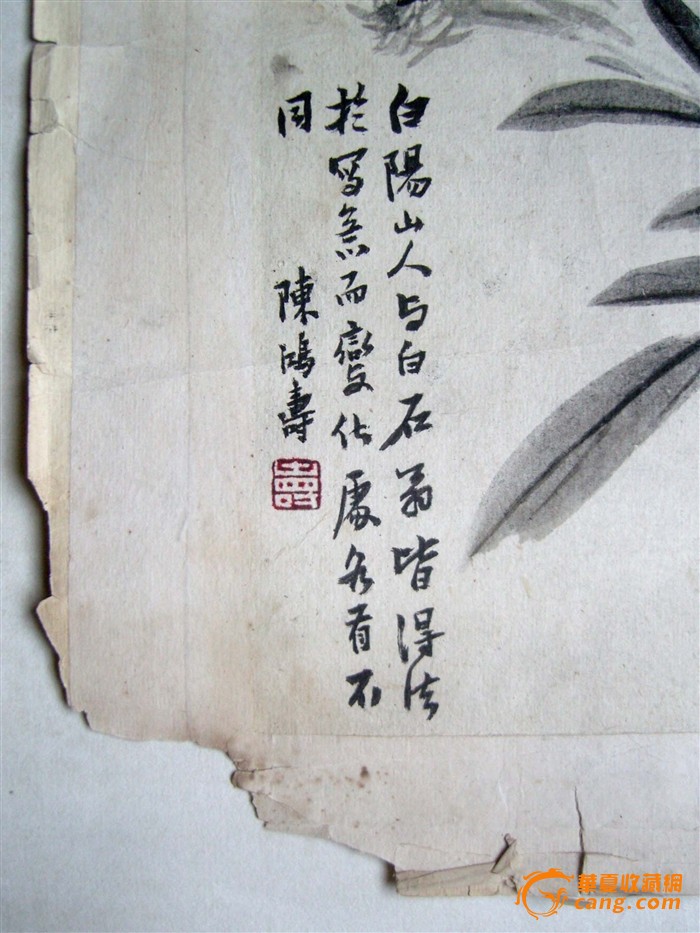 白陽山人与白石翁皆得法
於寫意而變化處各有不
同
陳鴻壽
壽
華夏收藏網
cang.com